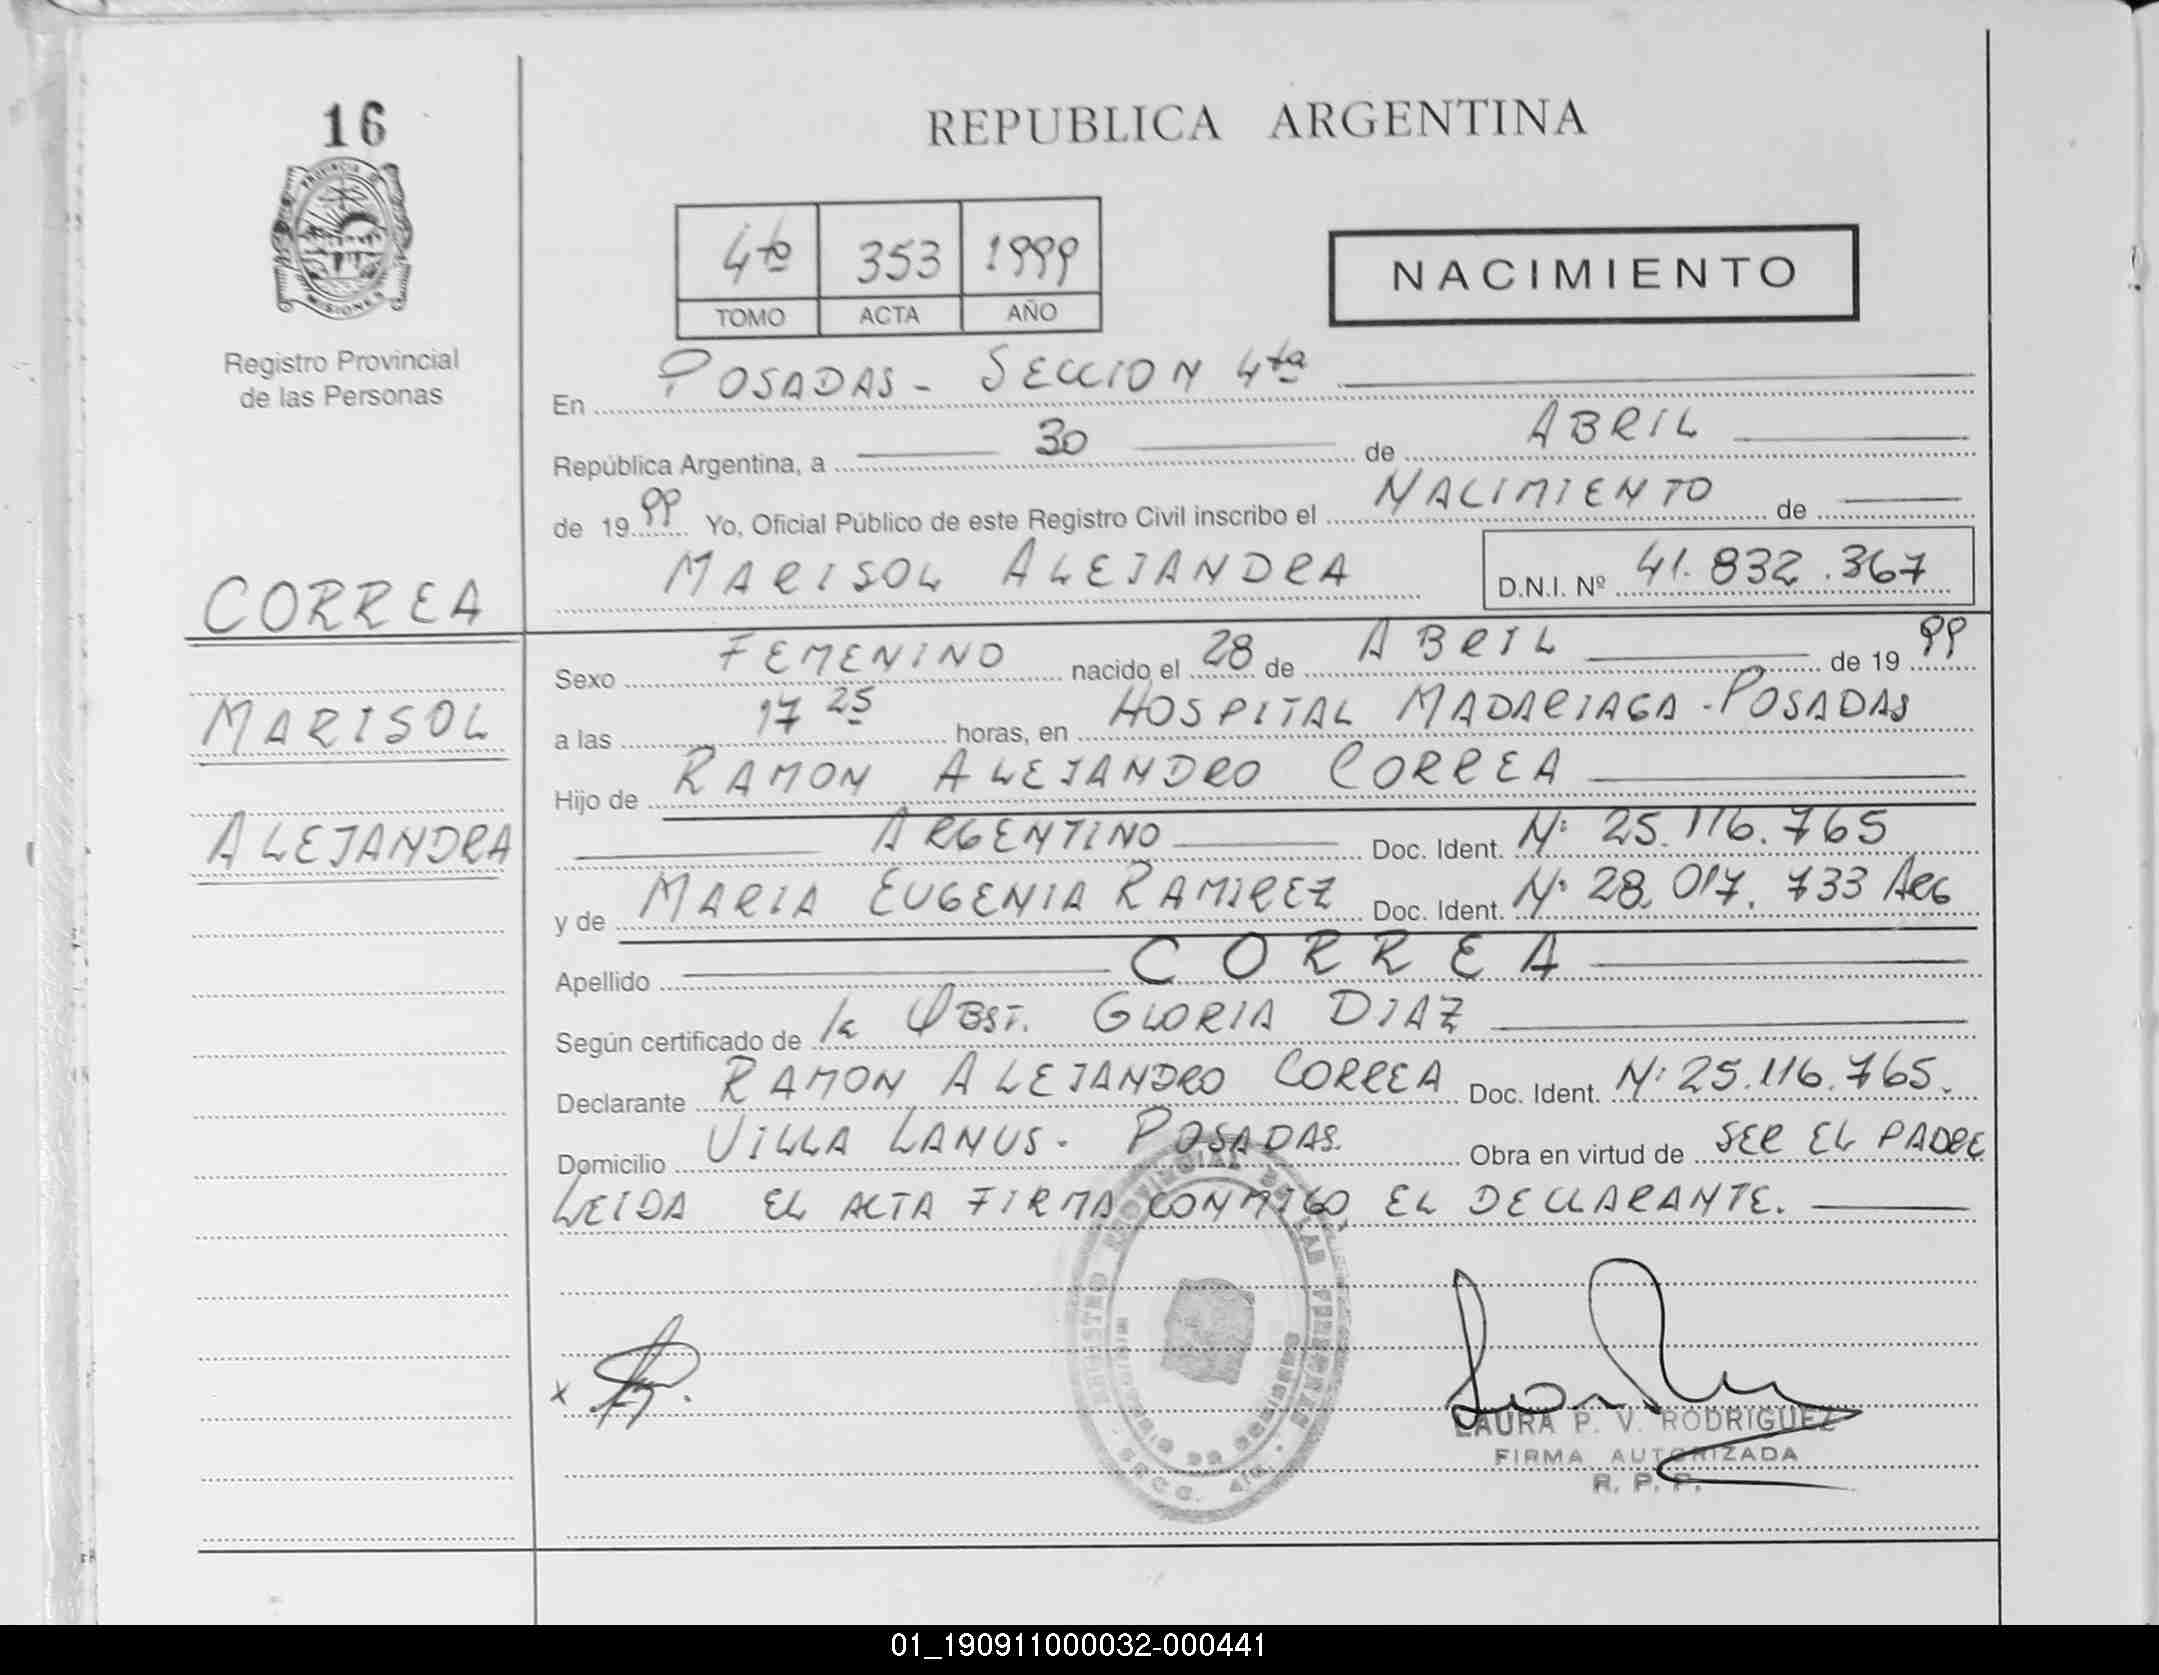 16
PROVINCIA D
MISIONES
Registro Provincial
de las Personas
CORREA
MARISOL
ALEJANDRA
REPUBLICA ARGENTINA
4to 353 1999
TOMO ACTA AÑO
NACIMIENTO
En POSADAS - SECCION 4ta
República Argentina, a 30 de ABRIL
de 1999 Yo, Oficial Público de este Registro Civil inscribo el NACIMIENTO de
MARISOL ALEJANDRA D.N.I. Nº 41.832.367
Sexo FEMENINO nacido el 28 de ABRIL de 1999
a las 17 25 horas, en HOSPITAL MADARIAGA - POSADAS
Hijo de RAMON ALEJANDRO CORREA
ARGENTINO Doc. Ident. N: 25.116.765
y de MARIA EUGENIA RAMIREZ Doc. Ident. N: 28.017.733 ARG
Apellido CORREA
Según certificado de la OBST. GLORIA DIAZ
Declarante RAMON ALEJANDRO CORREA Doc. Ident. N: 25.116.765.
Domicilio VILLA LANUS - POSADAS. Obra en virtud de SER EL PADRE
LEIDA EL ACTA FIRMA CONMIGO, EL DECLARANTE.
REGISTRO PROVINCIAL DE LAS PERSONAS
x
LAURA P. V. RODRIGUEZ
FIRMA AUTORIZADA
R. P. P.
01_190911000032-000441